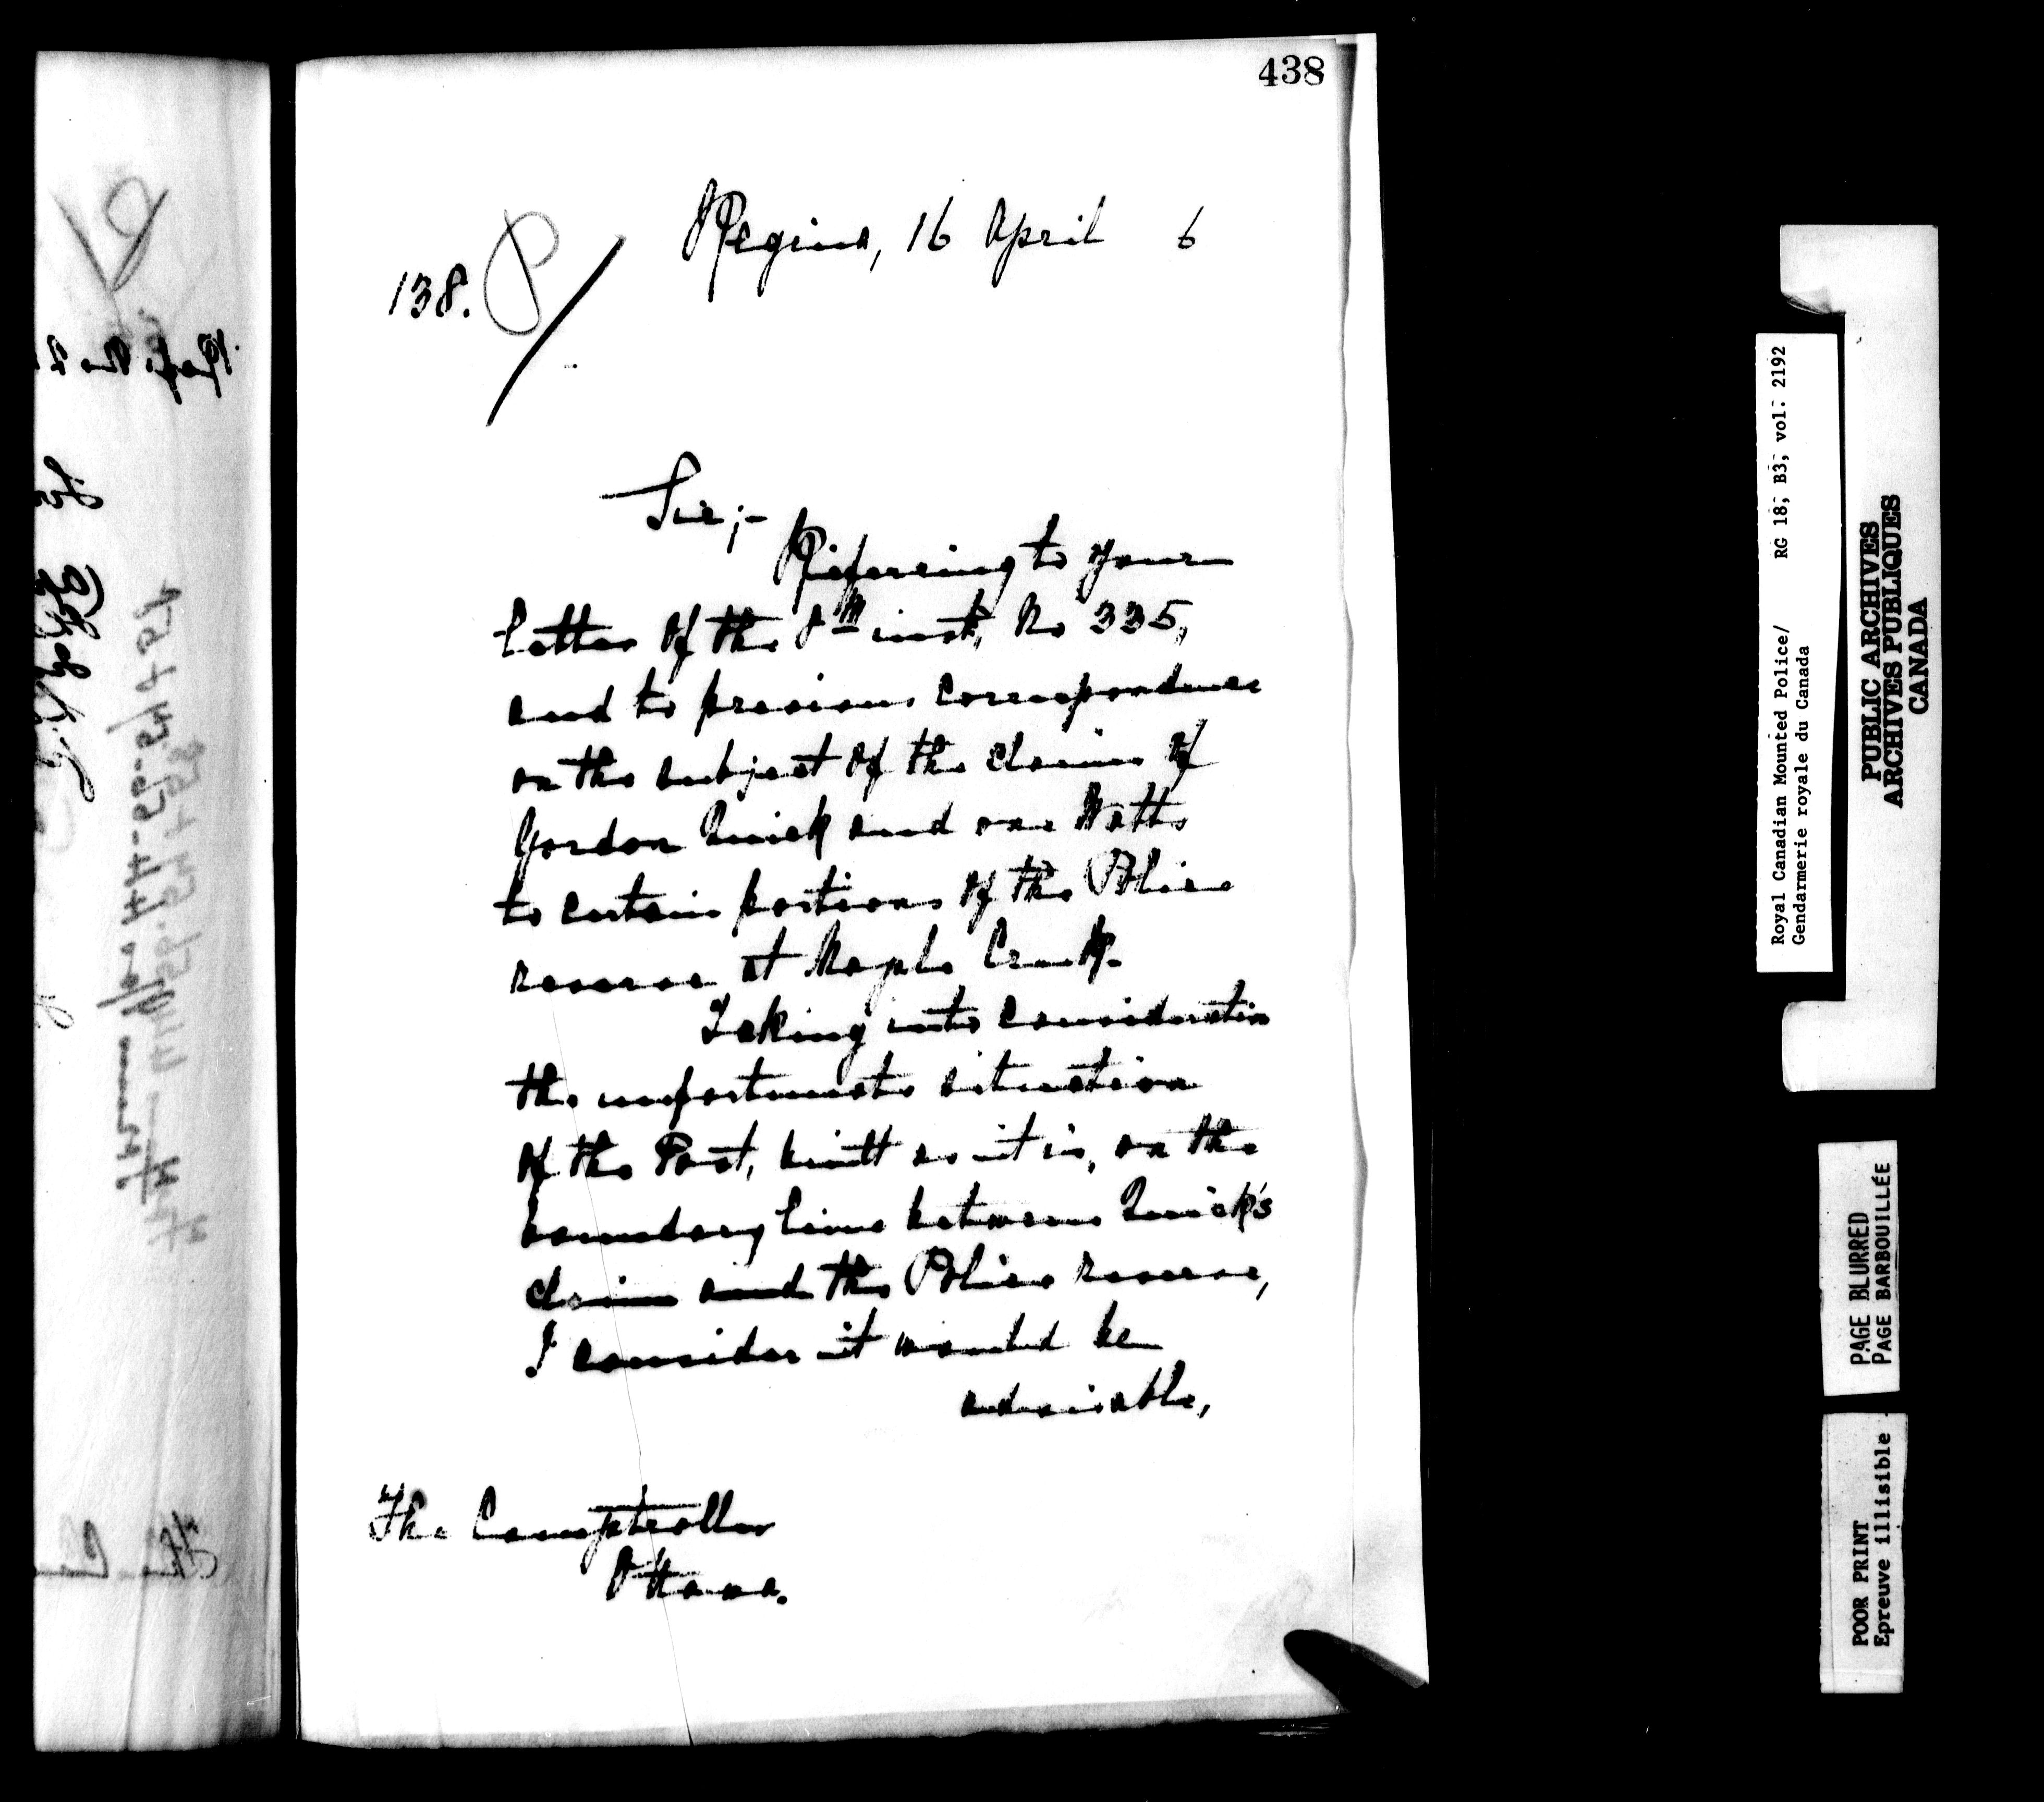 438
Regina, 16 April 6
138. P
Sir;-
Referring to your
letter of the 8th inst, No 335,
and to previous correspondence
on the subject of the claims of
Gordon Quick and one Watts
to certain portions of the Police
reserve at Maple Creek.
Taking into consideration
the unfortunate situation
of the Post, built as it is, on the
boundary line between Quick's
claim and the Police reserve,
I consider it would be
advisable,
The Comptroller
Ottawa.
Royal Canadian Mounted Police/ RG 18, B3, vol. 2192
Gendarmerie royale du Canada
PUBLIC ARCHIVES
ARCHIVES PUBLIQUES
CANADA
PAGE BLURRED
PAGE BARBOUILLÉE
POOR PRINT
Epreuve illisible